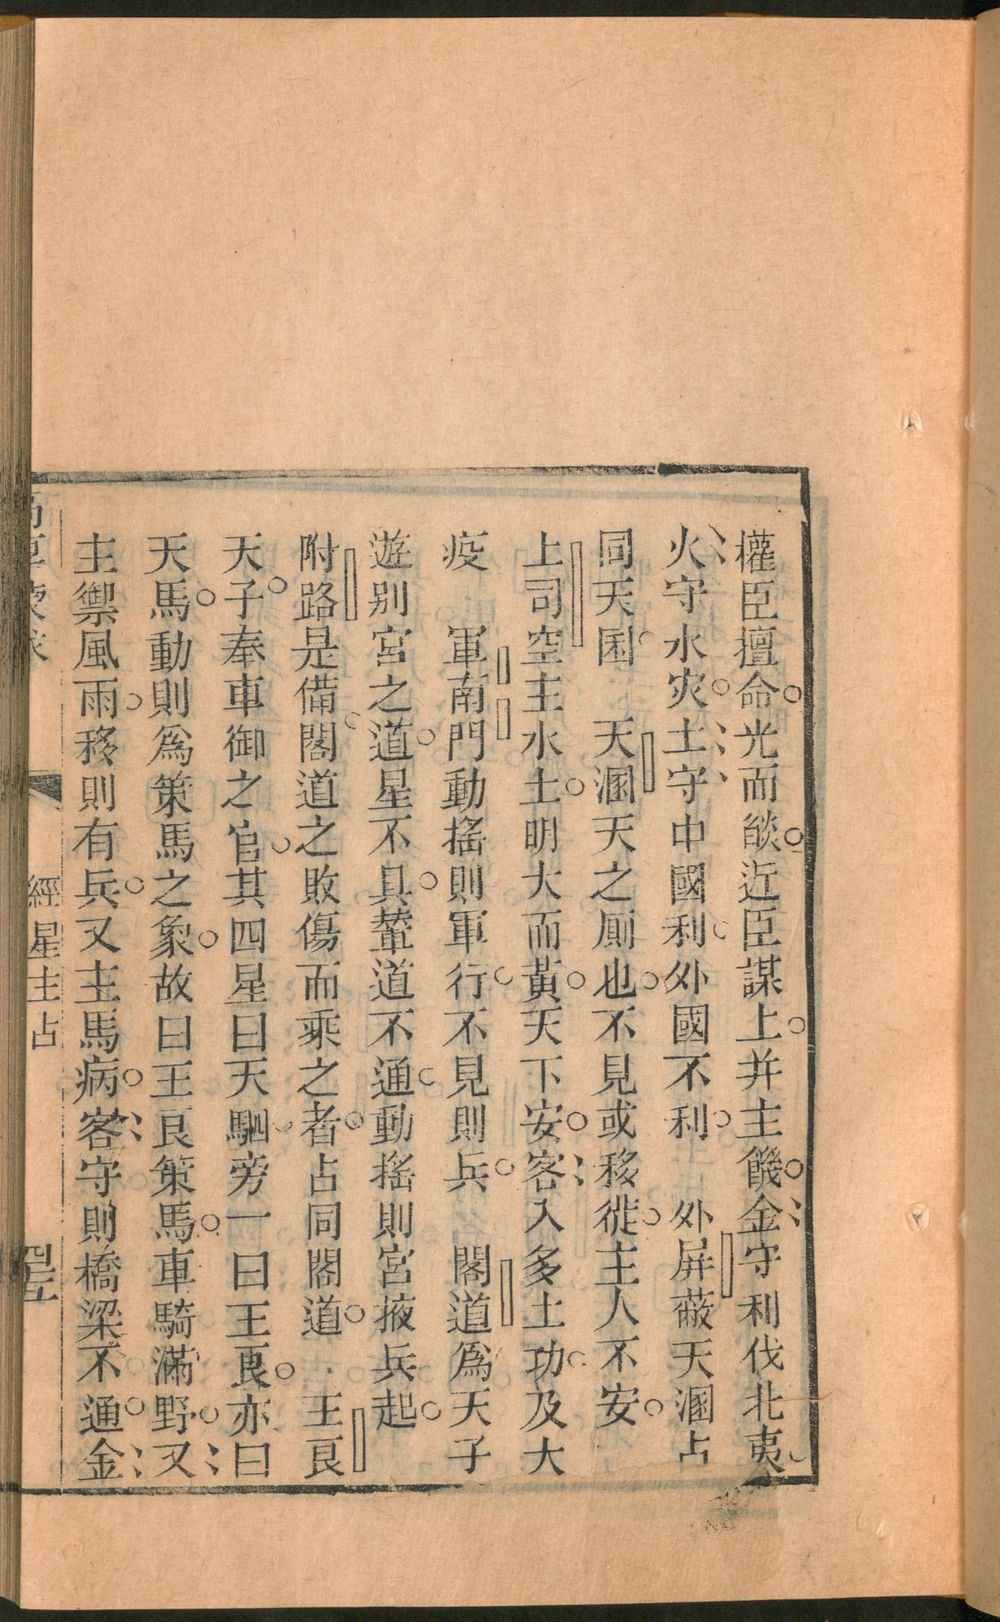 權臣擅命光而燄近臣謀上并主饑金守利伐北夷
火守水灾土守中國利外國不利　外屏蔽天溷占
同天囷　天溷天之厠也不見或移徙主人不安
上司空主水土明大而黃天下安客入多土功及大
疫　軍南門動搖則軍行不見則兵　閣道爲天子
遊别宮之道星不具輦道不通動搖則宮掖兵起
附路是備閣道之敗傷而乘之者占同閣道　王良
天子奉車御之官其四星曰天駟旁一曰王良亦曰
天馬動則爲策馬之象故曰王良策馬車騎滿野又
主禦風雨移則有兵又主馬病客守則橋梁不通金
經星主占